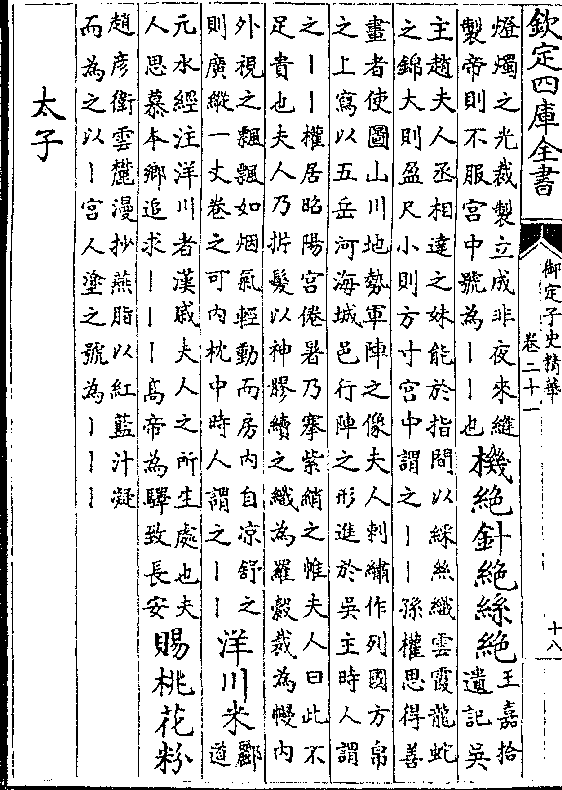 欽定四庫全書
御定子史精華
卷二十一
十八
燈燭之光裁製立成非夜來縫
製帝則不服宮中號為丨丨也
機絶針絶絲絶
王嘉拾
遺記吳
主趙夫人丞相達之妹能於指間以綵絲織雲霞龍虵
之錦大則盈尺小則方寸宮中謂之丨丨孫權思得善
畫者使圖山川地勢軍陣之像夫人刺繡作列國方帛
之上寫以五岳河海城邑行陣之形進於吳主時人謂
之丨丨權居昭陽宮倦暑乃搴紫綃之帷夫人曰此不
足貴也夫人乃㭊髮以神膠續之織為羅縠裁為幔内
外視之飄飄如烟氣輕動而房内自凉舒之
則廣縱一丈卷之可内枕中時人謂之丨丨
洋川米
酈
道
元水經注洋川者漢戚夫人之所生處也夫
人思慕本鄉追求丨丨丨髙帝為驛致長安
賜桃花粉
趙彦衛雲麓漫抄燕脂以紅藍汁凝
而為之以丨宮人塗之號為丨丨丨
太子